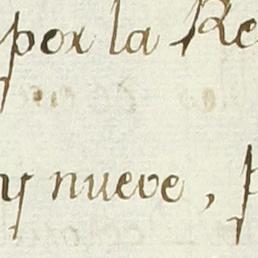 por la Re
y nueve, p